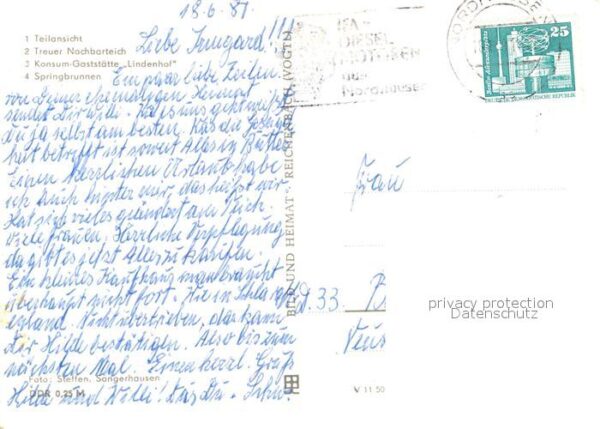 18.6.81
1 Teilansicht
2 Treuer Nachbarteich
3 Konsum-Gaststätte "Lindenhof"
4 Springbrunnen
Liebe Irmgard!!!
Ein paar liebe Zeilen
von Deiner ehemaligen Heimat
sendet Dir wieder.
Du ja selbst am besten. Was die Gesund
heit betrifft ist soweit Alles in Butter
Einen herzlichen Urlaub habe
ich auch hinter mir, das heißt wir
Hat sich vieles geändert am Teich.
viele Frauen. Herrliche Verpflegung
da gibt es jetzt Alles zu kaufen.
Ein kleines Kaufhaus man braucht
überhaupt nicht fort. Wie in Schlara
ffenland. Nicht übertrieben, das kann
Dir Hilde bestätigen. Also bis zum
nächsten Mal. Einen herzl. Gruß
Hilde und Willi!
Foto: Steffen, Sangerhausen
DDR 0,25 M
BILD UND HEIMAT REICHENBACH (VOGTL)
V 11 50
IFA-
DIESEL
MOTOREN
aus
Nordhausen
NORDHAUSEN
25
DEUTSCHE DEMOKRATISCHE REPUBLIK
Frau
privacy protection
Datenschutz